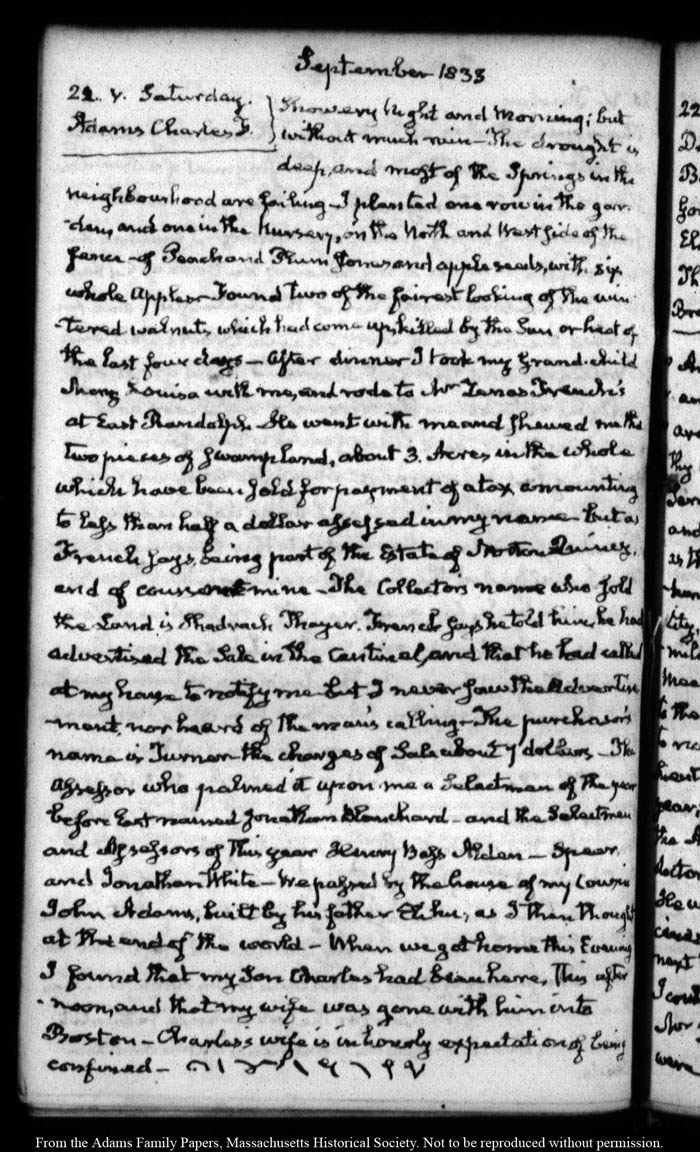 September 1833
21. V. Saturday.
Adams Charles F.
Showery Night and Morning; but
without much rain – The drought is
deep, and most of the Springs in the
neighbourhood are failing – I planted one row in the gar-
-den, and one in the Nursery, on the North and West side of the
fence – of Peach and Plum stones and apple seeds, with six
whole Apples – Found two of the fairest looking of the win-
-tered walnuts, which had come up, killed by the Sun or heat of
the last four days – After dinner I took my Grand-child
Mary Louisa with me, and rode to Mr Zenas French's
at East Randolph. He went with me and shewed me the
two pieces of swamp land, about 3. Acres in the whole
which have been sold for payment of a tax amounting
to less than half a dollar assessed in my name – but as
French says, being part of the Estate of Norton Quincy,
and of course not mine – The Collectors name who sold
the Land is Shadrach Thayer. French says he told him, he had
advertised the Sale in the Centinel, and that he had called
at my house to notify me but I never saw the Advertise-
-ment, nor heard of the man's calling – The purchaser's
name is Turner – the charges of Sale about 7 dollars – The
Assessor who palmed it upon me a Selectman of the year
before last named Jonathan Blanchard – and the Selectmen
and Assessors of this year Henry Bass Alden – Spear
and Jonathan White – We passed by the house of my Cousin
John Adams, built by his father Elihu, as I then thought
at the end of the world – When we got home this Evening
I found that my Son Charles had been here, this after-
-noon, and that my wife was gone with him into
Boston – Charles's wife is in hourly expectation of being
confined –
22
From the Adams Family Papers, Massachusetts Historical Society. Not to be reproduced without permission.